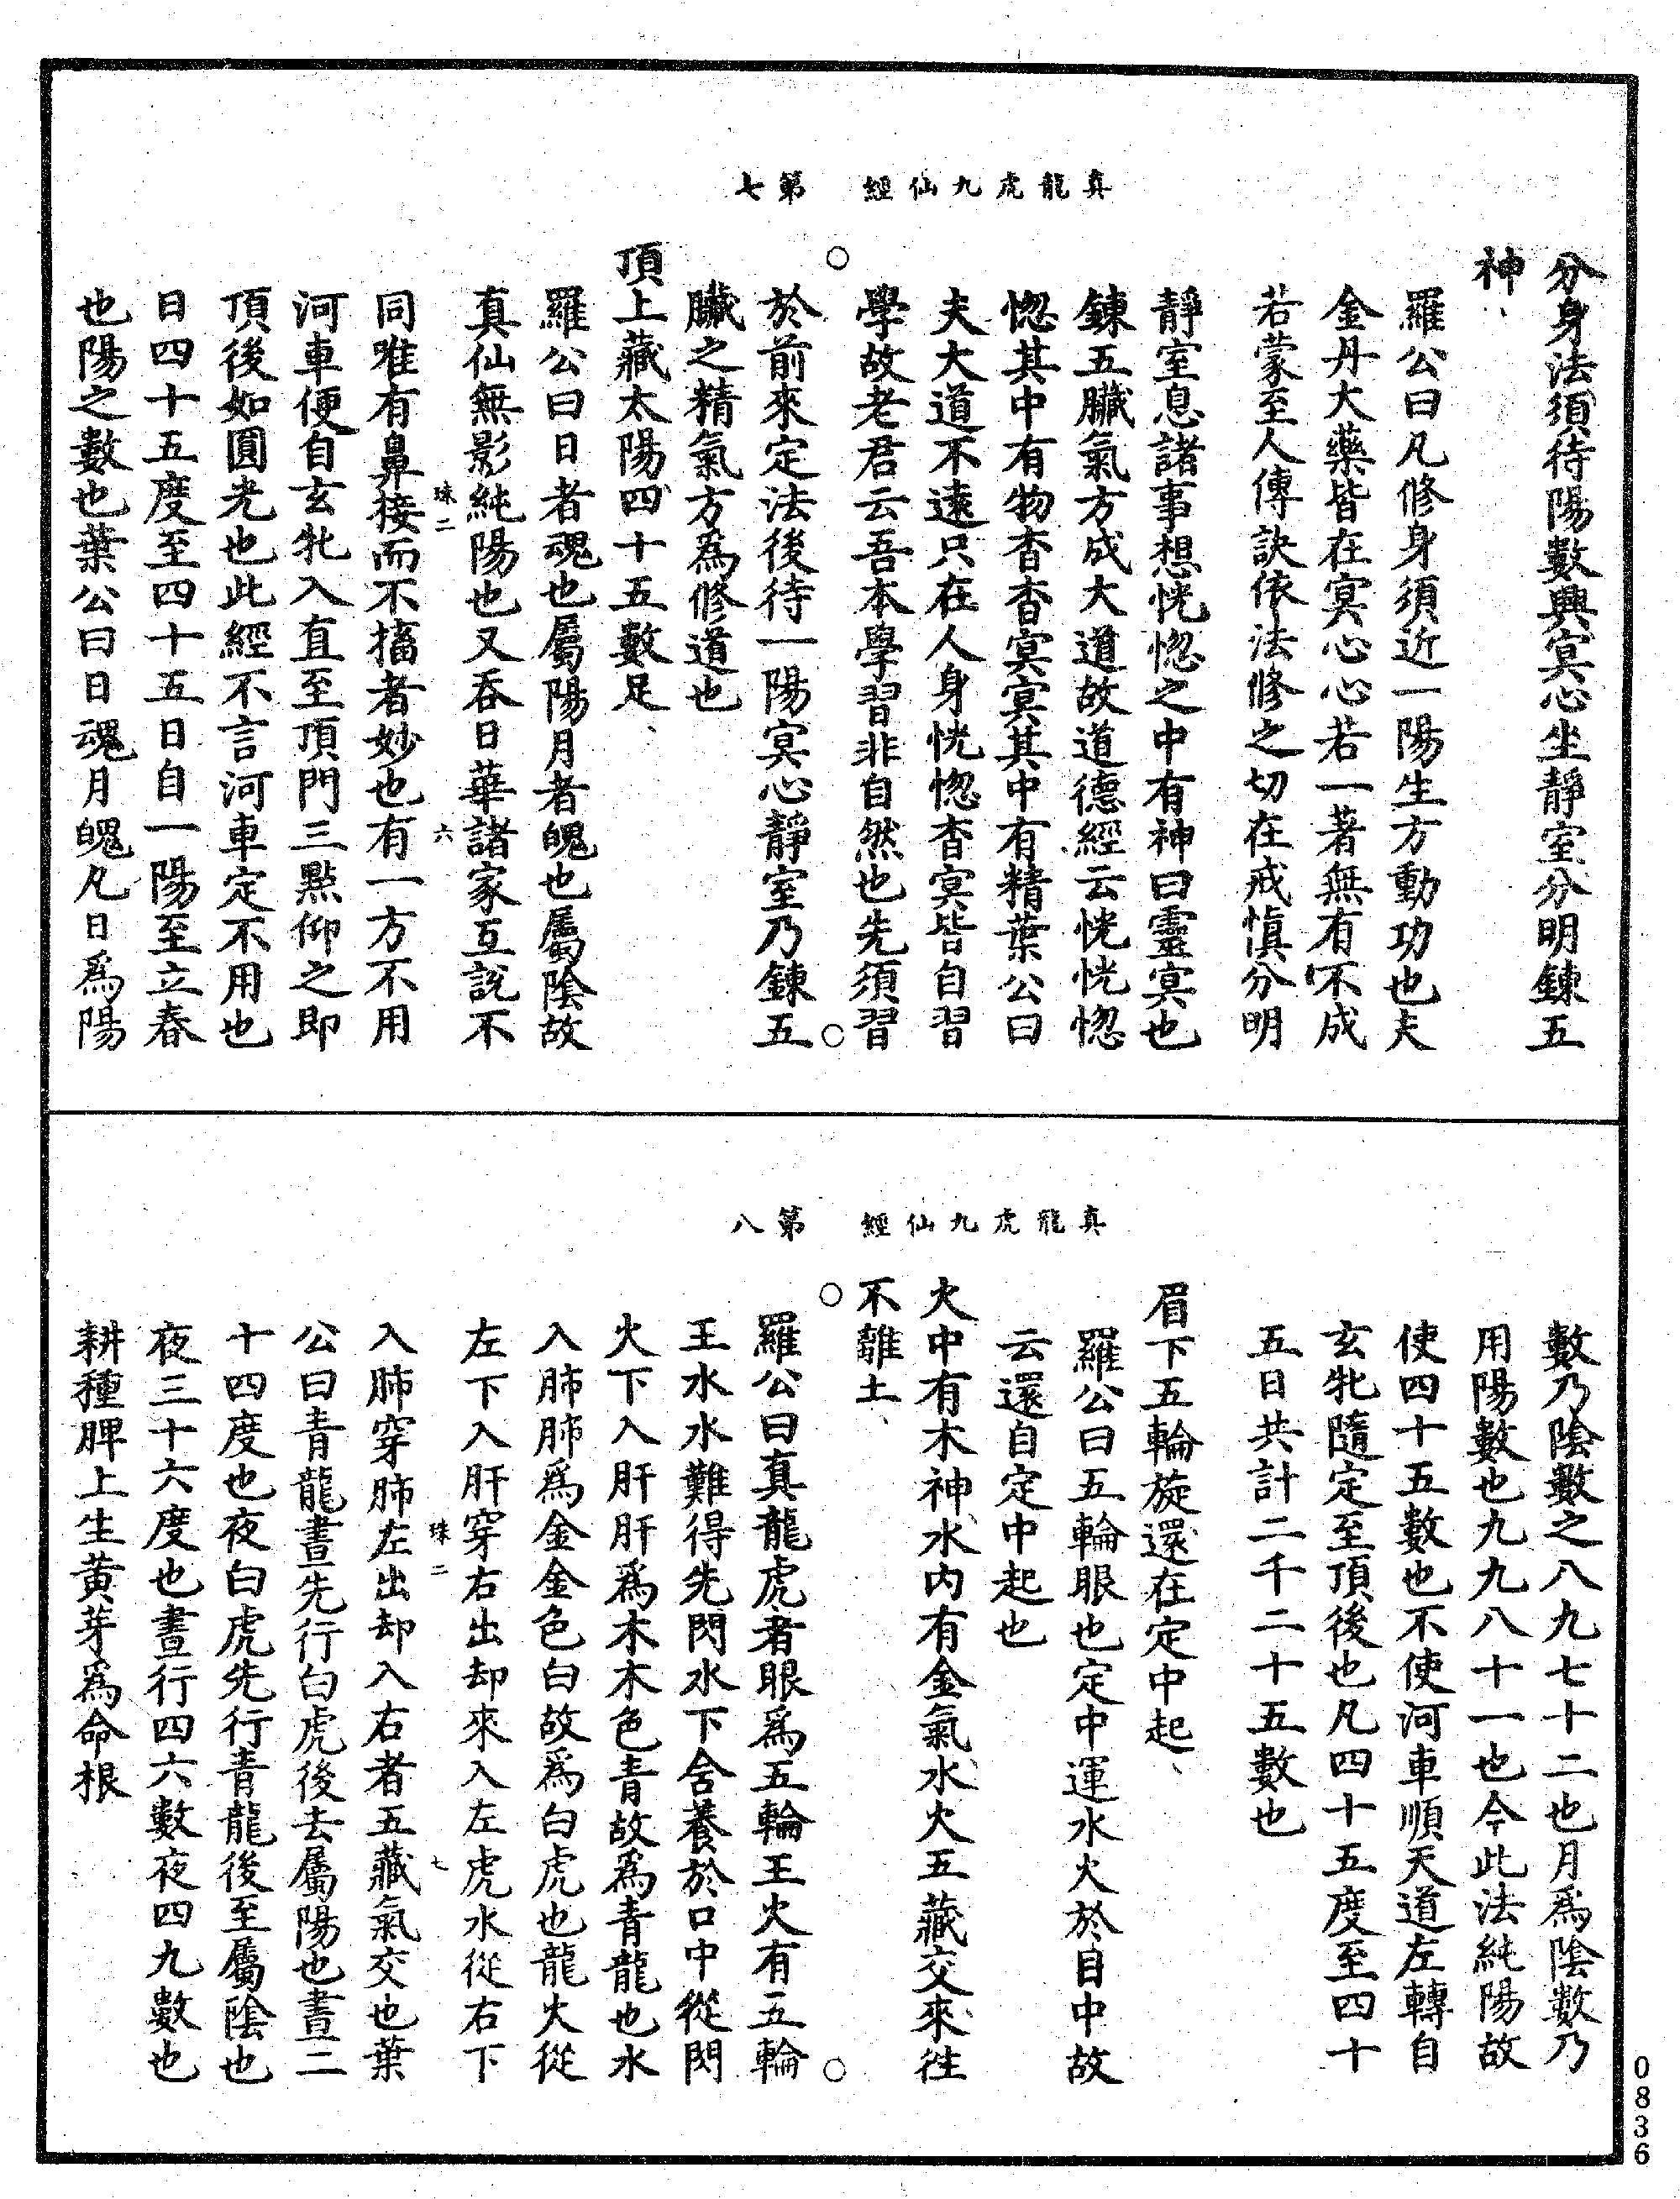 真龍虎九仙經　第七
分身法須待陽數興冥心坐靜室分明鍊五
神
羅公曰凡修身須近一陽生方動功也夫
金丹大藥皆在冥心心若一著無有不成
若蒙至人傳訣依法修之切在戒慎分明
靜室息諸事想恍惚之中有神曰靈冥也
鍊五臟氣方成大道故道德經云恍恍惚
惚其中有物杳杳冥冥其中有精葉公曰
夫大道不遠只在人身恍惚杳冥皆自習
學故老君云吾本學習非自然也先須習
於前來定法後待一陽冥心靜室乃鍊五
臟之精氣方為修道也
頂上藏太陽四十五數足
羅公曰日者魂也屬陽月者魄也屬陰故
真仙無影純陽也又吞日華諸家互說不
珠二　六
同唯有鼻接而不搐者妙也有一方不用
河車便自玄牝入直至頂門三點仰之即
頂後如圓光也此經不言河車定不用也
日四十五度至四十五日自一陽至立春
也陽之數也葉公曰日魂月魄凡日為陽
真龍虎九仙經　第八
數乃陰數之八九七十二也月為陰數乃
用陽數也九九八十一也今此法純陽故
使四十五數也不使河車順天道左轉自
玄牝隨定至頂後也凡四十五度至四十
五日共計二千二十五數也
眉下五輪旋還在定中起
羅公曰五輪眼也定中運水火於目中故
云還自定中起也
火中有木神水內有金氣水火五藏交來往
不離土
羅公曰真龍虎者眼為五輪王火有五輪
王水水難得先閃水下含養於口中從閃
火下入肝肝為木木色青故為青龍也水
入肺肺為金金色白故為白虎也龍火從
左下入肝穿右出却來入左虎水從右下
珠二　七
入肺穿肺左出却入右者五藏氣交也葉
公曰青龍晝先行白虎後去屬陽也晝二
十四度也夜白虎先行青龍後至屬陰也
夜三十六度也晝行四六數夜四九數也
耕種脾上生黃芽為命根
0836